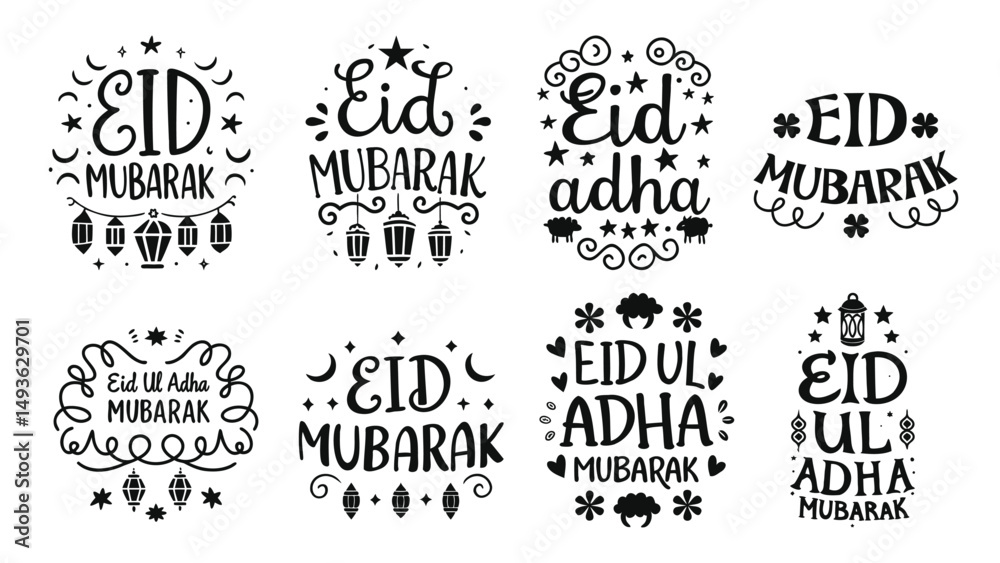 EID
MUBARAK
Eid
MUBARAK
Eid
adha
EID
MUBARAK
Eid Ul Adha
MUBARAK
EID
MUBARAK
EID UL
ADHA
MUBARAK
EID
UL
ADHA
MUBARAK
Adobe Stock | #1493629701
Adobe Stock